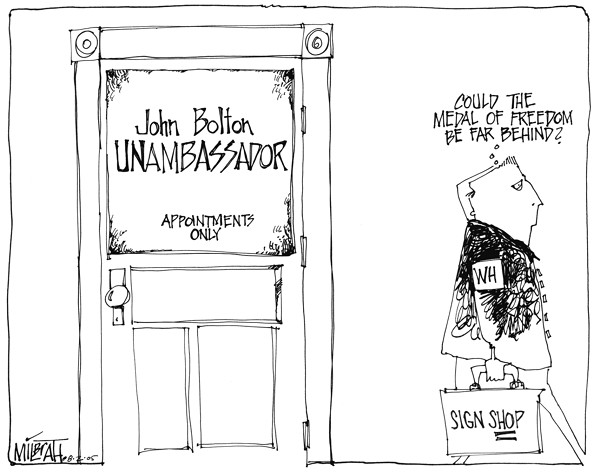 John Bolton
UNAMBASSADOR
APPOINTMENTS
ONLY
COULD THE
MEDAL OF FREEDOM
BE FAR BEHIND?
WH
SIGN SHOP
MILBRATH
8·2·05